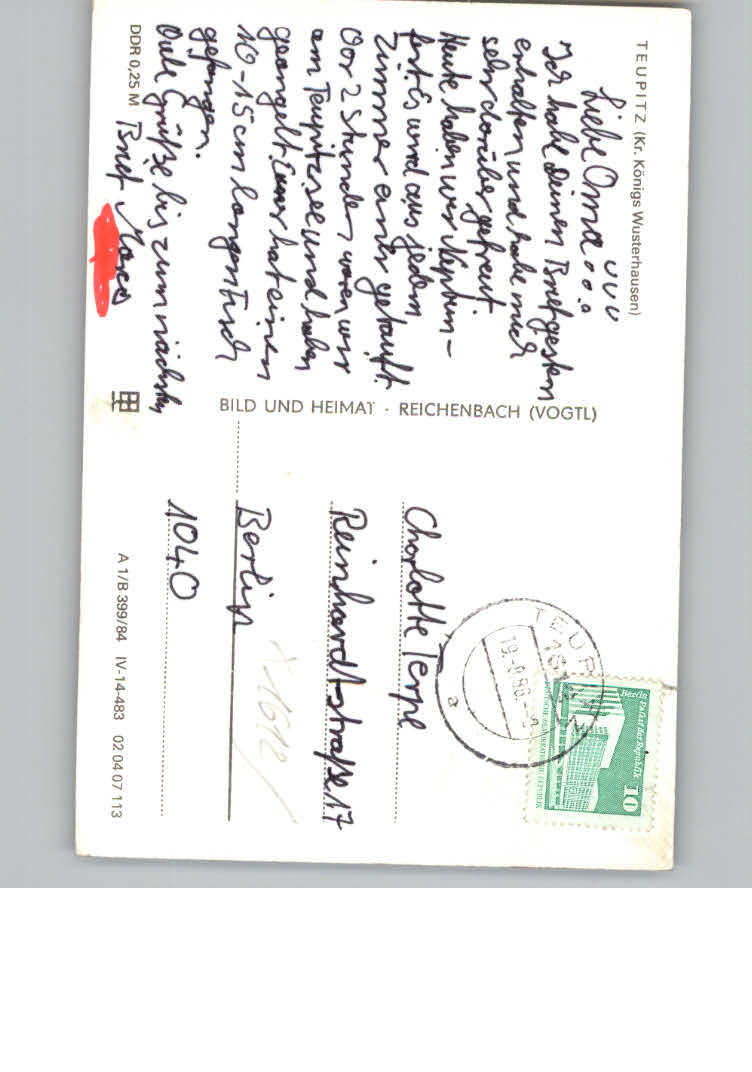 TEUPITZ (Kr. Königs Wusterhausen)
Liebe Oma!
Ich habe Deinen Brief gestern
erhalten und habe mich
sehr darüber gefreut.
Heute haben wir Neptun-
fest. Es wird aus jedem
Zimmer einer getauft.
Vor 2 Stunden waren wir
am Teupitzsee und haben
geangelt. Einer hat einen
10-15 cm langen Fisch
gefangen.
Viele Grüße bis zum nächsten
Brief
DDR 0,25 M
BILD UND HEIMAT · REICHENBACH (VOGTL)
TEUPITZ
a
Berlin-Palast der Republik
10
DEUTSCHE DEMOKRATISCHE REPUBLIK
Charlotte Terpe
Reinhardtstraße 17
Berlin
1040
A 1/B 399/84 IV-14-483 02 04 07 113